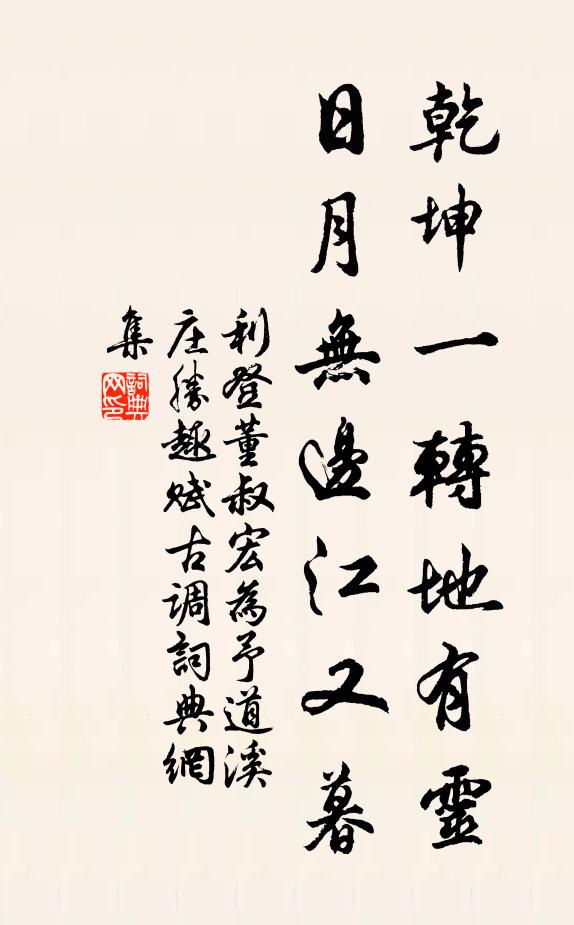 乾坤一轉地有靈
日月無邊江又暮
利登董叔宏為予道溪
庄勝趣賦古调詞典網
集
詞典网印